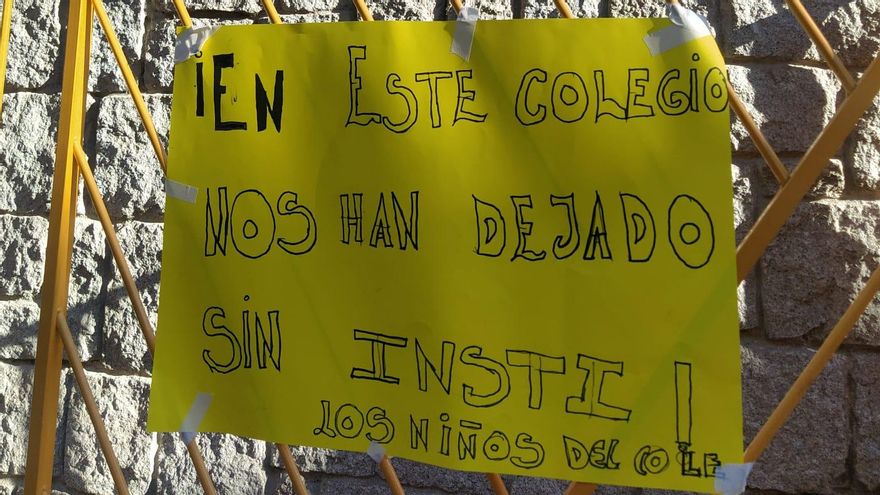 ¡EN ESTE COLEGIO
NOS HAN DEJADO
SIN INSTI!
LOS NIÑOS DEL COLE